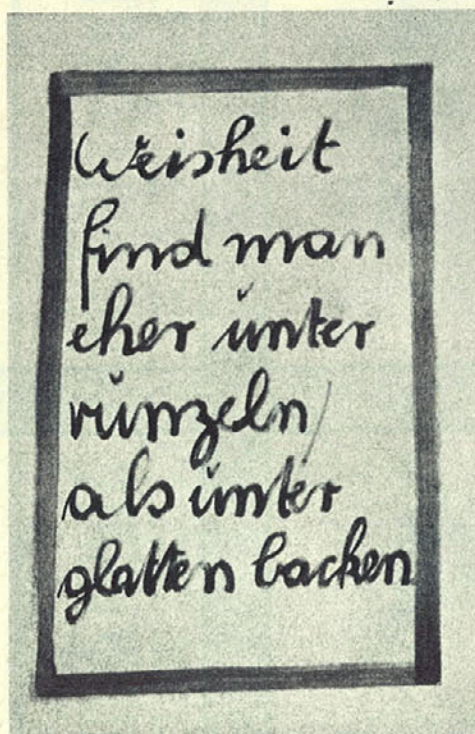 Weisheit
find man
eher unter
runzeln/
als unter
glatten backen